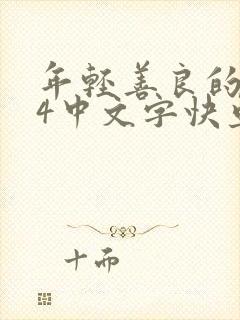 年轻善良的
4中文字快
十而